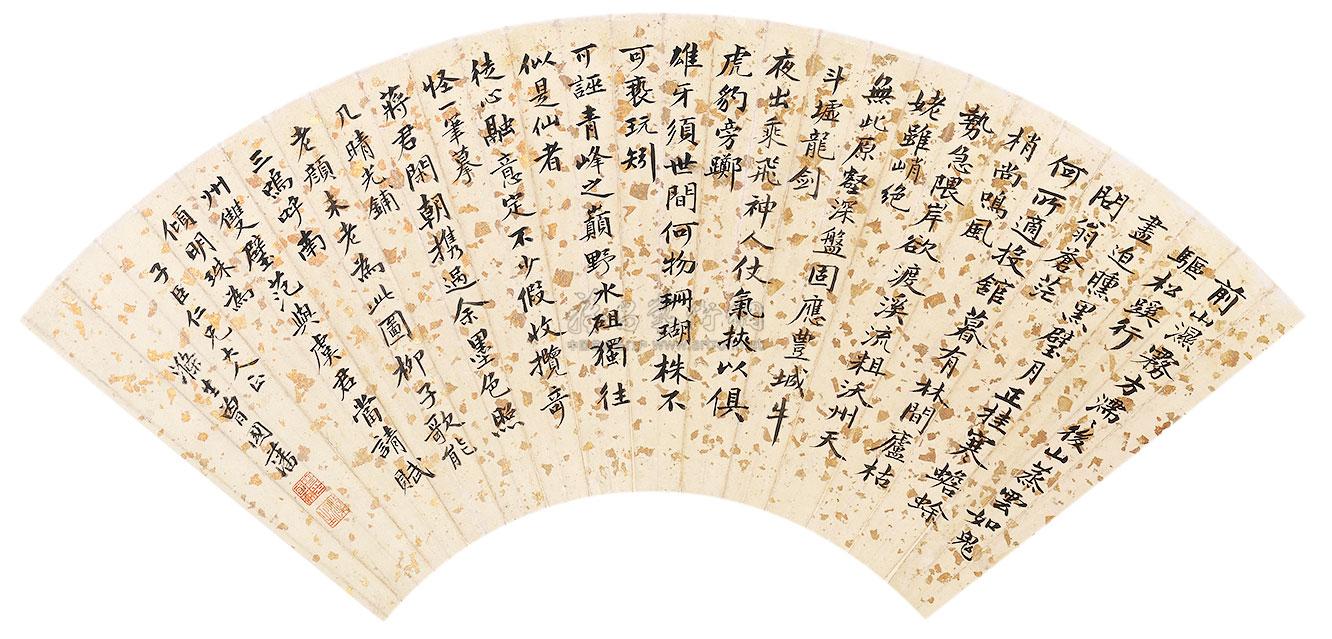 前山濕霧方濡濡後山蒸雲如鬼
驅松蹊行
盡迫曛黑璧月正挂寒蟾蜍
問翁蒼茫
何所適投館暮有林間廬枯
梢尚鳴風
勢急隈岸欲渡溪流粗沃州天
姥雖峭絕
無此原壑深盤固應豐城牛
斗墟龍劍
夜出乘飛神人仗氣挾以俱
虎豹旁躑
雄牙須世間何物珊瑚株不
可褻玩矧
可誣青峰之巔野水砠獨往
似是仙者
徒心融意定不少假收攬奇
怪一筆摹
蔣君閑朝攜過余墨色照
几晴光鋪
老顏未老為此圖柳子歌能
三嗚呼南
州雙璧范與虞君當請賦
傾明珠為
子臣仁兄大人正
滌生曾國藩